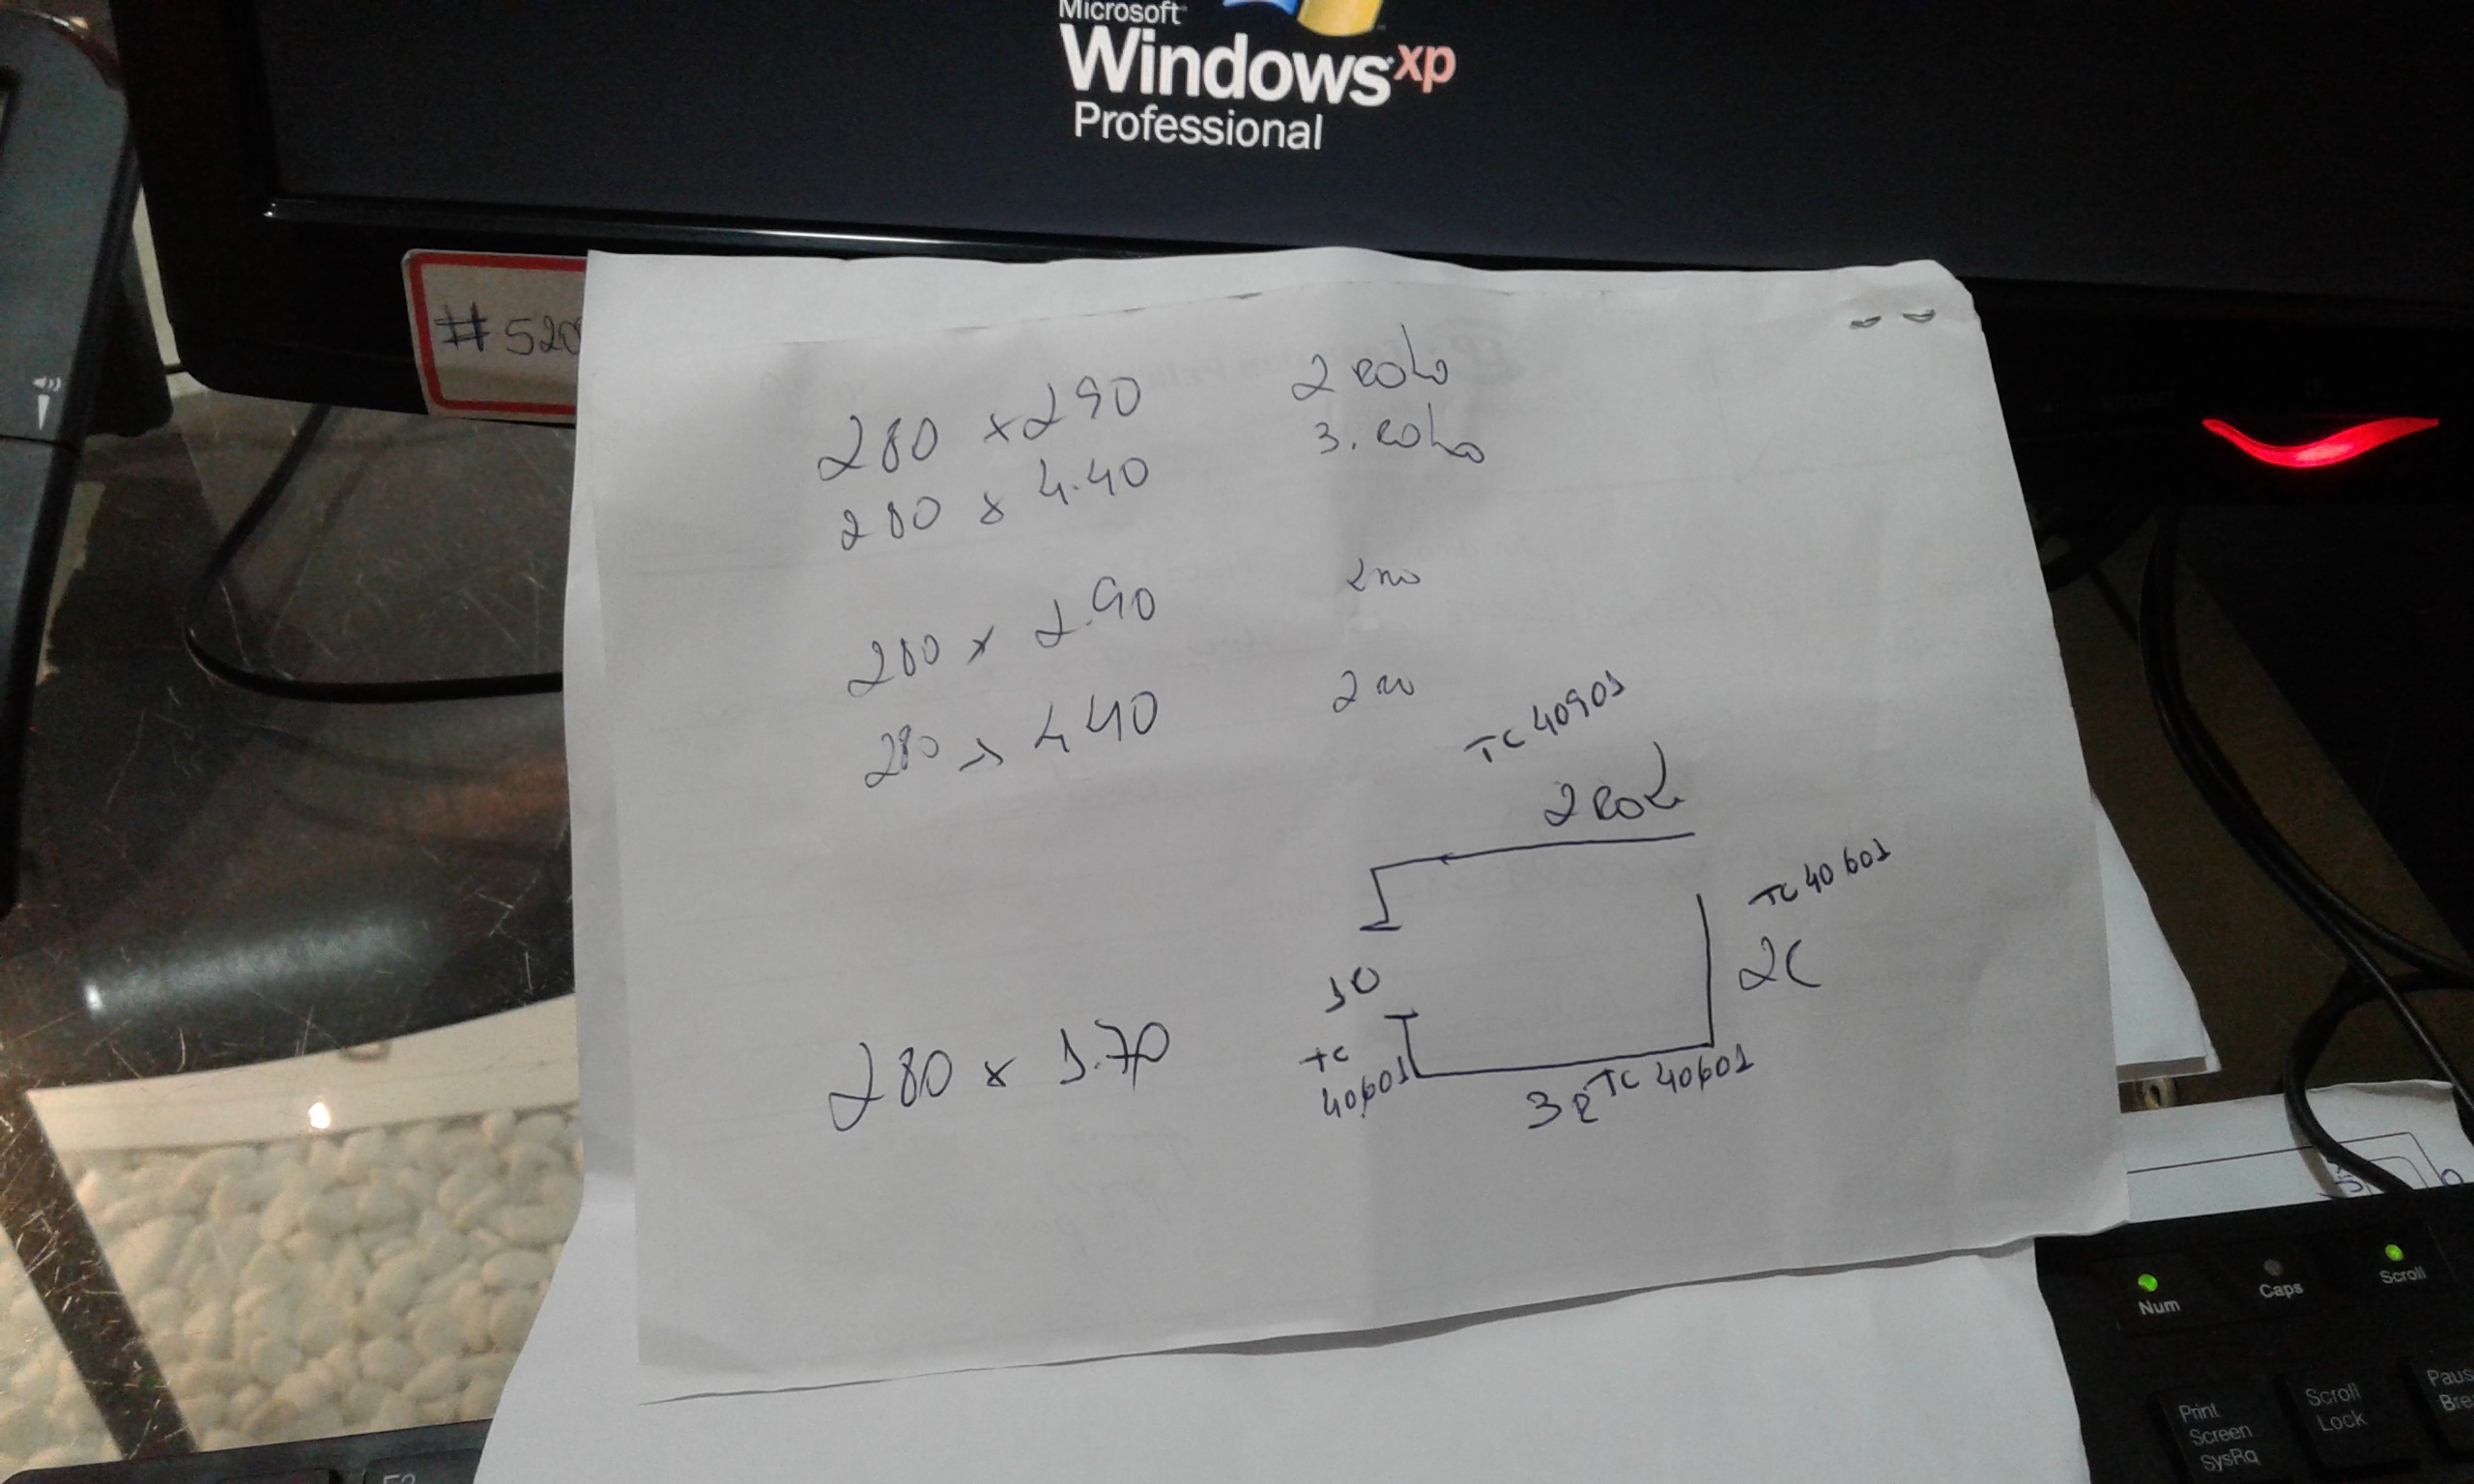 Microsoft
Windows xp
Professional
#520
280 x 290 2 Rolo
280 x 4.40 3. Rolo
280 x 2.90
280 x 440
TC 40901
2 Rol
TC 40601
2
10
280 x 1.70
TC
40601
3 R TC 40601
Num
Caps
Scroll
Print
Screen
SysRq
Scroll
Lock
Paus
Bre
F3